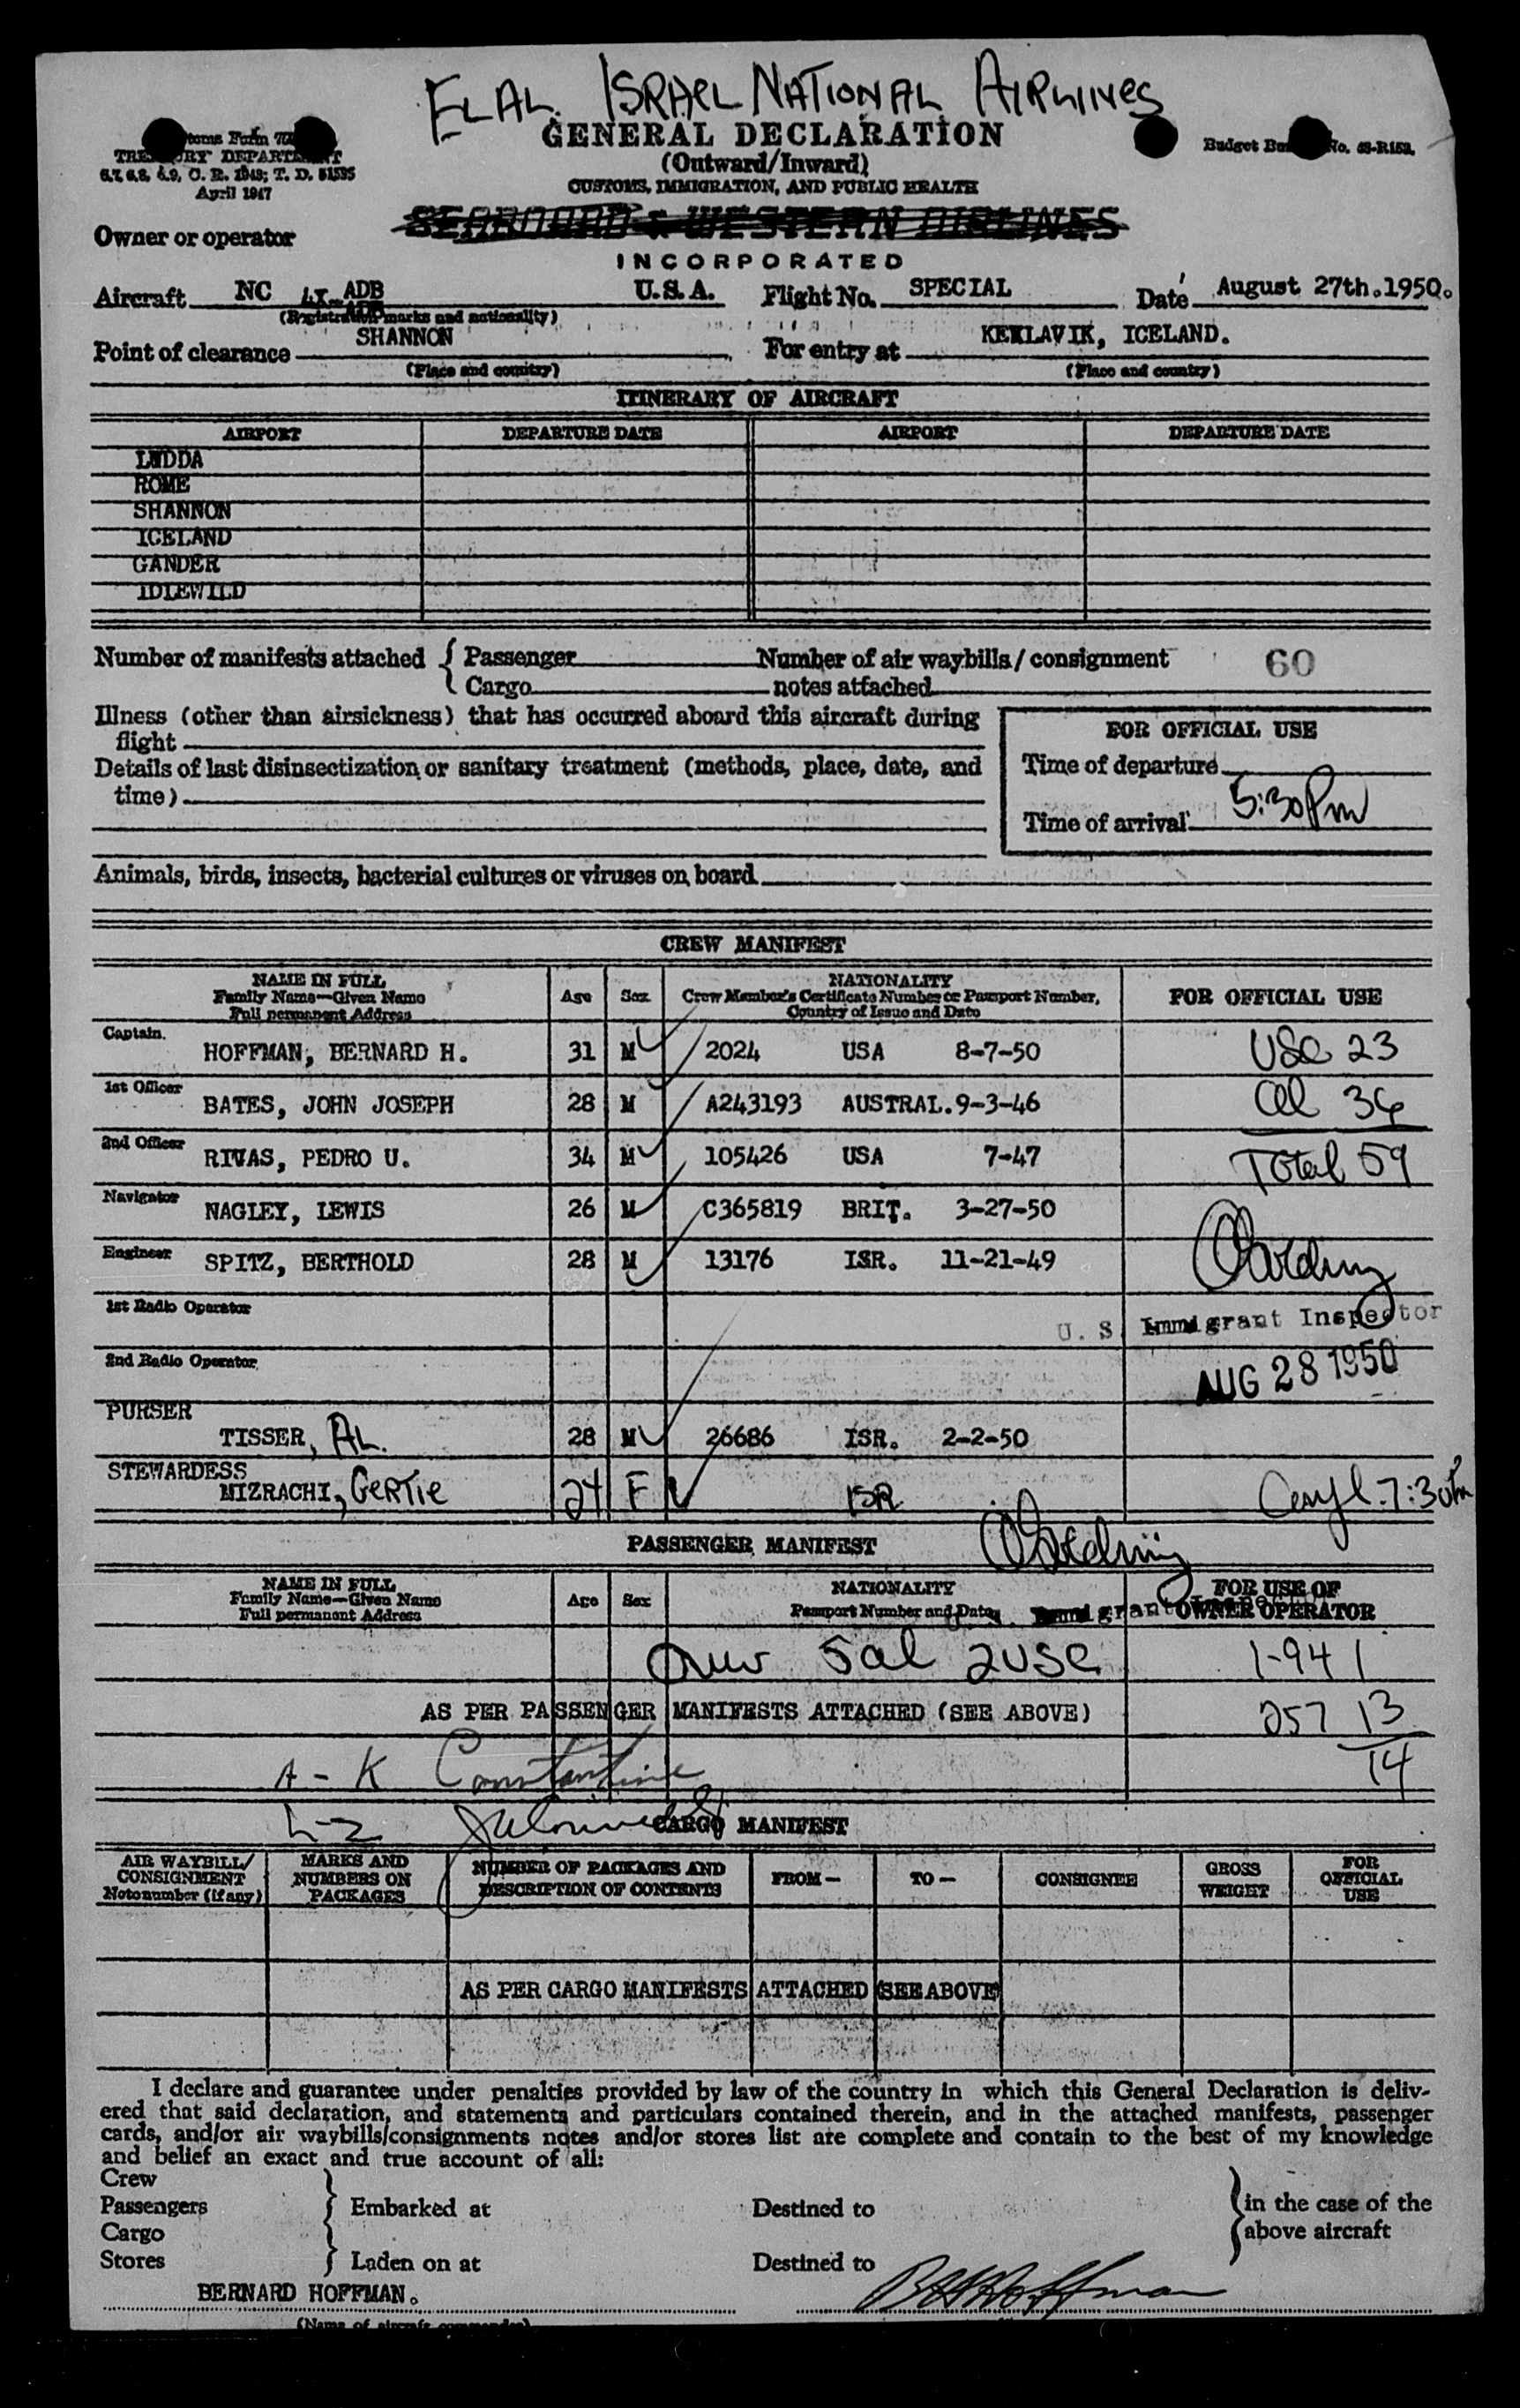 EL AL ISRAEL NATIONAL AIRLINES
GENERAL DECLARATION
(Outward/Inward)
CUSTOMS, IMMIGRATION, AND PUBLIC HEALTH
TREASURY DEPARTMENT
April 1947
Owner or operator SEABOARD & WESTERN AIRLINES
INCORPORATED
Aircraft NC 4X-ADB U.S.A. Flight No. SPECIAL Date August 27th.1950.
(Registration marks and nationality)
Point of clearance SHANNON For entry at KEKLAVIK, ICELAND.
(Place and country) (Place and country)
ITINERARY OF AIRCRAFT
AIRPORT DEPARTURE DATE AIRPORT DEPARTURE DATE
LYDDA
ROME
SHANNON
ICELAND
GANDER
IDLEWILD
Number of manifests attached { Passenger Number of air waybills/consignment 60
Cargo notes attached
Illness (other than airsickness) that has occurred aboard this aircraft during
flight
FOR OFFICIAL USE
Details of last disinsectization or sanitary treatment (methods, place, date, and
time)
Time of departure
Time of arrival 5:30 Pm
Animals, birds, insects, bacterial cultures or viruses on board
CREW MANIFEST
NAME IN FULL
Family Name—Given Name
Full permanent Address
Age Sex
NATIONALITY
Crew Member's Certificate Number or Passport Number,
Country of Issue and Date
FOR OFFICIAL USE
Captain. HOFFMAN, BERNARD H. 31 M 2024 USA 8-7-50 USC 23
1st Officer BATES, JOHN JOSEPH 28 M A243193 AUSTRAL. 9-3-46 al 36
2nd Officer RIVAS, PEDRO U. 34 M 105426 USA 7-47 Total 59
Navigator NAGLEY, LEWIS 26 M C365819 BRIT. 3-27-50
Engineer SPITZ, BERTHOLD 28 M 13176 ISR. 11-21-49
1st Radio Operator
U. S. Immigrant Inspector
2nd Radio Operator
AUG 28 1950
PURSER
TISSER, AL. 28 M 26686 ISR. 2-2-50
STEWARDESS
MIZRACHI, GERTIE 24 F ISR 7:30 Pm
PASSENGER MANIFEST
NAME IN FULL
Family Name—Given Name
Full permanent Address
Age Sex
NATIONALITY
Passport Number and Date
FOR USE OF
OWNER OPERATOR
5al 2USC 1-94 1
AS PER PASSENGER MANIFESTS ATTACHED (SEE ABOVE) 257 13
A - K Constantine 14
L-Z
CARGO MANIFEST
AIR WAYBILL/
CONSIGNMENT
Note number (if any)
MARKS AND
NUMBERS ON
PACKAGES
NUMBER OF PACKAGES AND
DESCRIPTION OF CONTENTS
FROM— TO— CONSIGNEE
GROSS
WEIGHT
FOR
OFFICIAL
USE
AS PER CARGO MANIFESTS ATTACHED (SEE ABOVE)
I declare and guarantee under penalties provided by law of the country in which this General Declaration is deliv-
ered that said declaration, and statements and particulars contained therein, and in the attached manifests, passenger
cards, and/or air waybills/consignments notes and/or stores list are complete and contain to the best of my knowledge
and belief an exact and true account of all:
Crew
Passengers } Embarked at Destined to } in the case of the
Cargo above aircraft
Stores } Laden on at Destined to
BERNARD HOFFMAN. BHHoffman
(Name of aircraft commander)